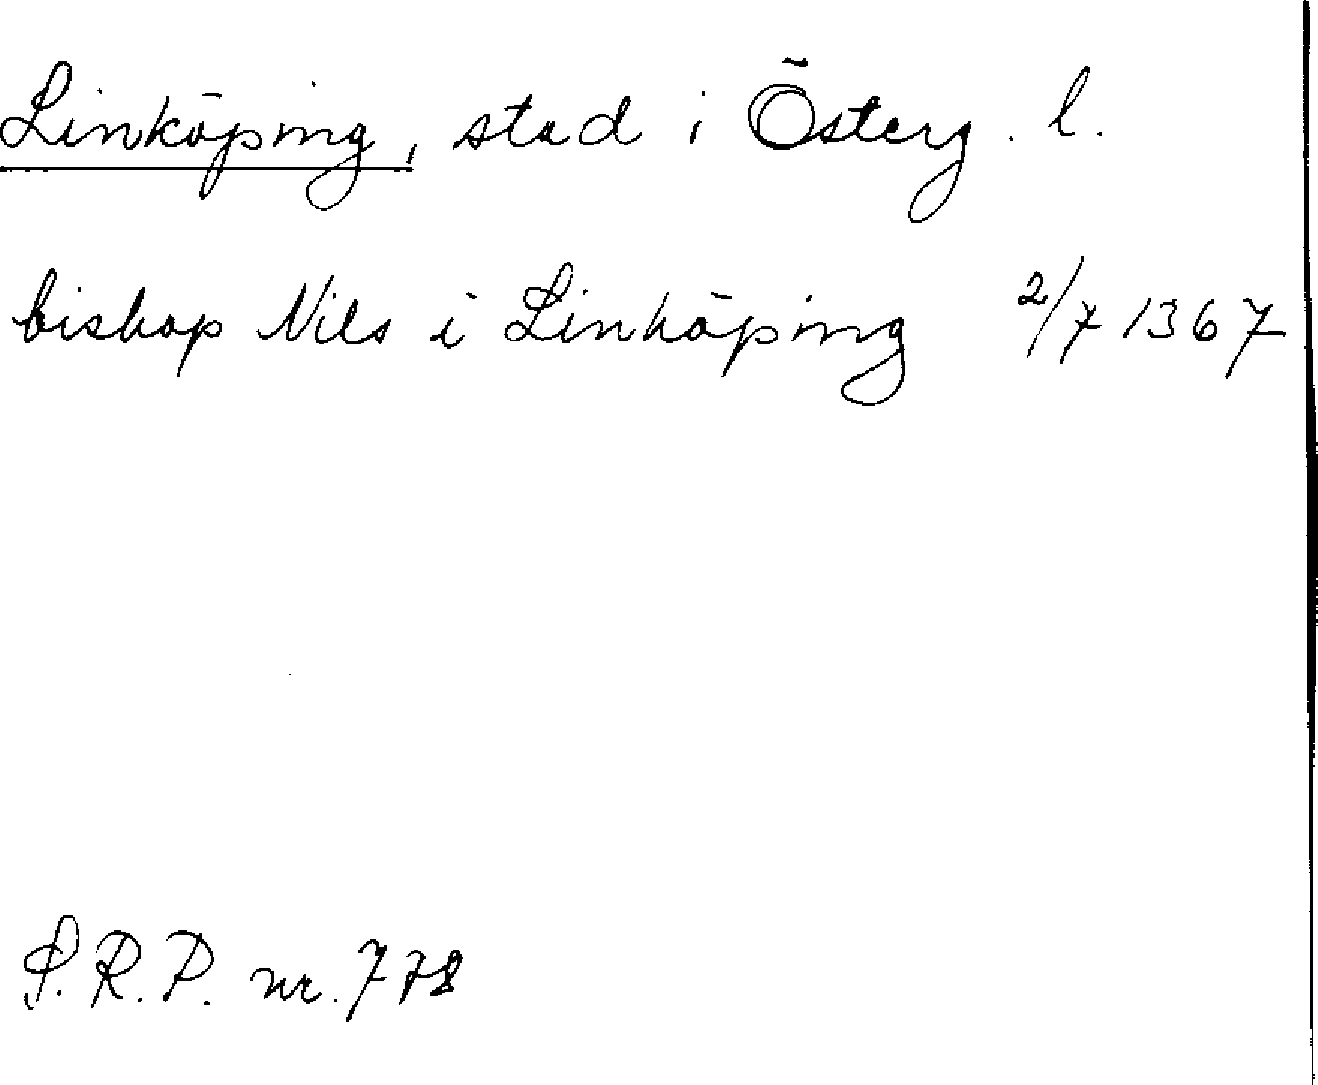 Linköping, stad i Österg. l.
biskop Nils i Linköping 2/7 1367
S.R.P. nr. 778